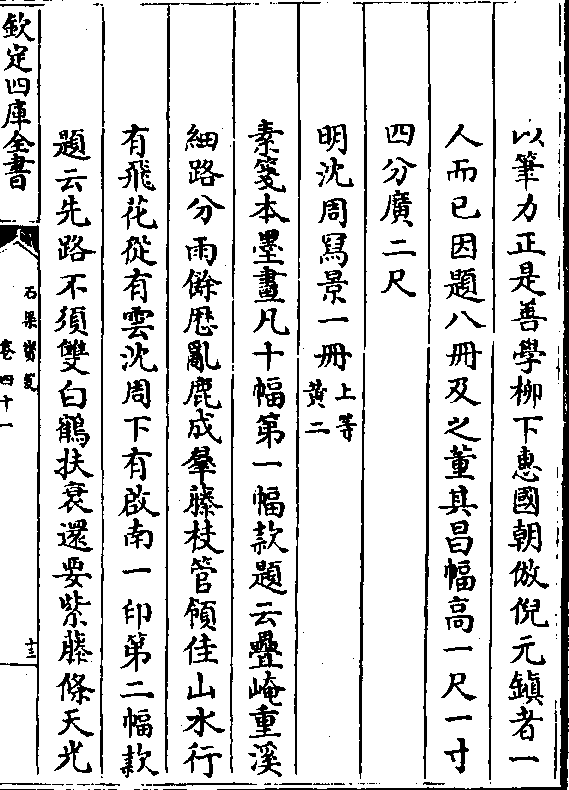 以筆力正是善學柳下惠國朝倣倪元鎮者一
人而已因題八冊及之董其昌幅高一尺一寸
四分廣二尺
明沈周寫景一冊上等黃二
素箋本墨畫凡十幅第一幅款題云疊崦重溪
細路分雨餘厯亂鹿成羣藤枝管領佳山水行
有飛花從有雲沈周下有啟南一印第二幅款
題云先路不須雙白鶴扶衰還要紫藤條天光
欽定四庫全書
石渠寳笈
卷四十一
十三